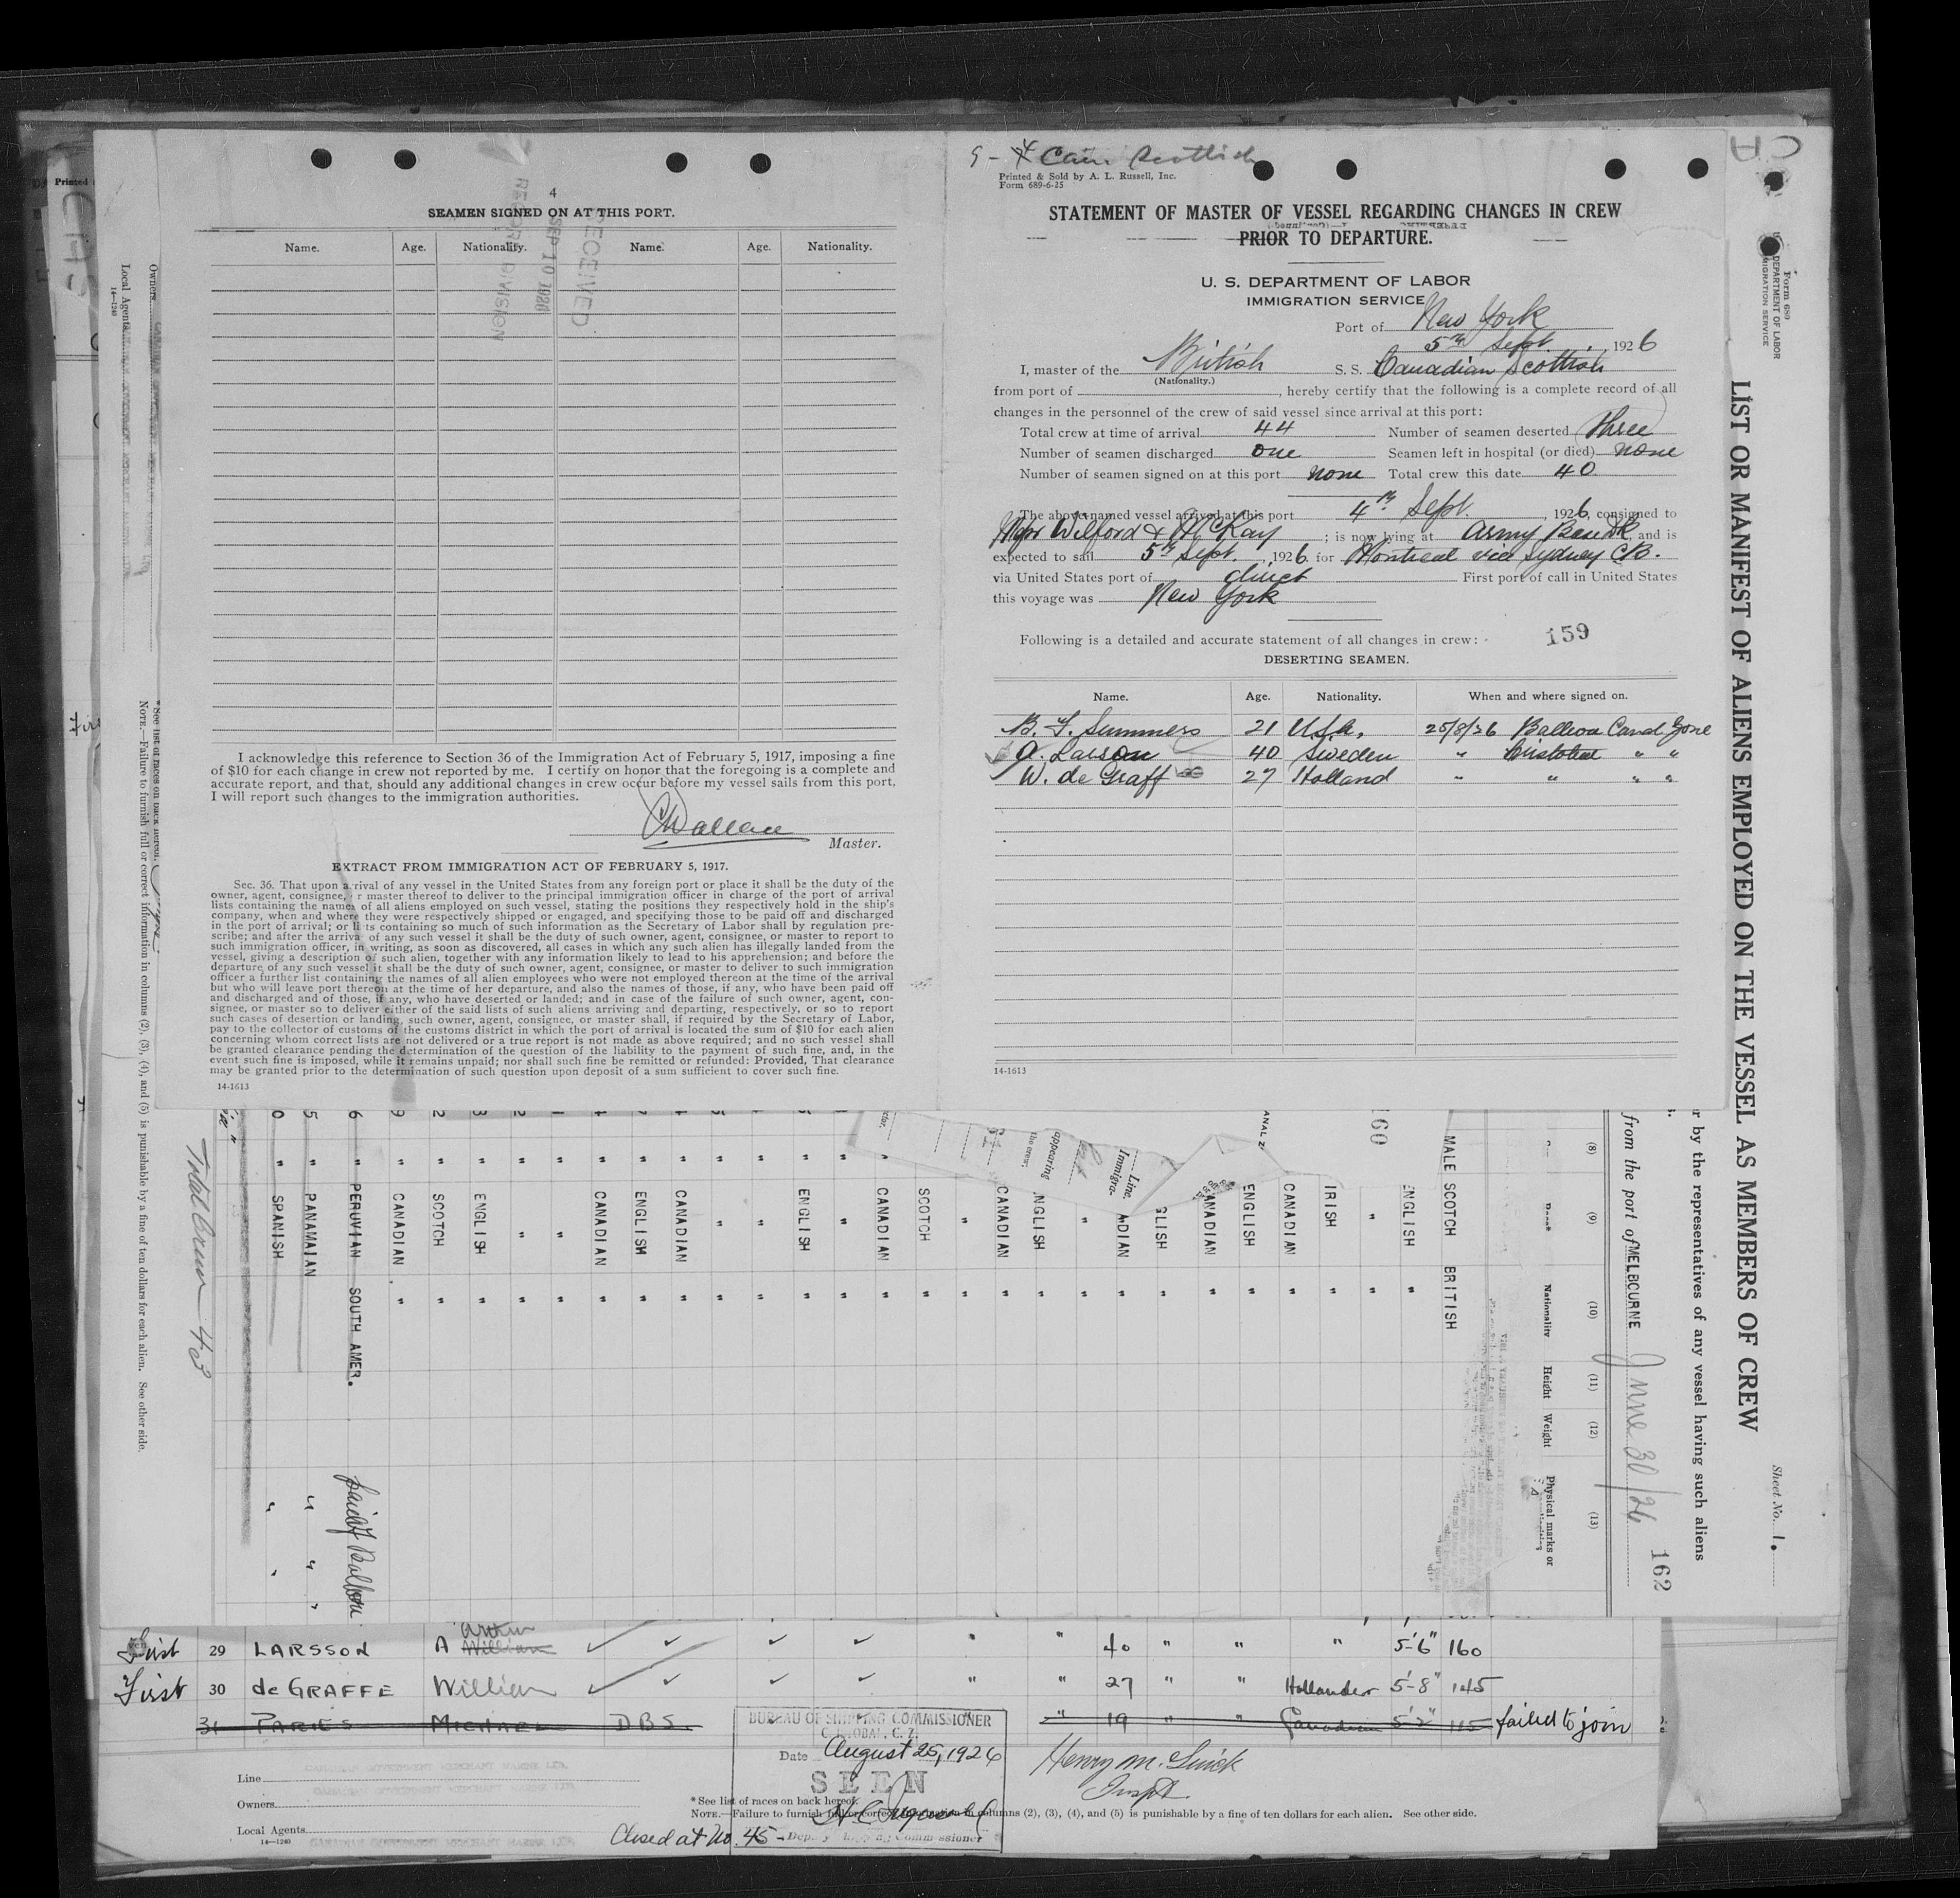 4
SEAMEN SIGNED ON AT THIS PORT.
Name. Age. Nationality. Name. Age. Nationality.
RECEIVED
SEP 10 1926
RECORD DIVISION
I acknowledge this reference to Section 36 of the Immigration Act of February 5, 1917, imposing a fine
of $10 for each change in crew not reported by me. I certify on honor that the foregoing is a complete and
accurate report, and that, should any additional changes in crew occur before my vessel sails from this port,
I will report such changes to the immigration authorities.
CWallace
Master.
EXTRACT FROM IMMIGRATION ACT OF FEBRUARY 5, 1917.
Sec. 36. That upon arrival of any vessel in the United States from any foreign port or place it shall be the duty of the
owner, agent, consignee, or master thereof to deliver to the principal immigration officer in charge of the port of arrival
lists containing the names of all aliens employed on such vessel, stating the positions they respectively hold in the ship's
company, when and where they were respectively shipped or engaged, and specifying those to be paid off and discharged
in the port of arrival; or lists containing so much of such information as the Secretary of Labor shall by regulation pre-
scribe; and after the arrival of any such vessel it shall be the duty of such owner, agent, consignee, or master to report to
such immigration officer, in writing, as soon as discovered, all cases in which any such alien has illegally landed from the
vessel, giving a description of such alien, together with any information likely to lead to his apprehension; and before the
departure of any such vessel it shall be the duty of such owner, agent, consignee, or master to deliver to such immigration
officer a further list containing the names of all alien employees who were not employed thereon at the time of the arrival
but who will leave port thereon at the time of her departure, and also the names of those, if any, who have been paid off
and discharged and of those, if any, who have deserted or landed; and in case of the failure of such owner, agent, con-
signee, or master so to deliver either of the said lists of such aliens arriving and departing, respectively, or so to report
such cases of desertion or landing, such owner, agent, consignee, or master shall, if required by the Secretary of Labor,
pay to the collector of customs of the customs district in which the port of arrival is located the sum of $10 for each alien
concerning whom correct lists are not delivered or a true report is not made as above required; and no such vessel shall
be granted clearance pending the determination of the question of the liability to the payment of such fine, and, in the
event such fine is imposed, while it remains unpaid; nor shall such fine be remitted or refunded: Provided, That clearance
may be granted prior to the determination of such question upon deposit of a sum sufficient to cover such fine.
14-1613
Scottish
Printed & Sold by A. L. Russell, Inc.
Form 689-6-25
STATEMENT OF MASTER OF VESSEL REGARDING CHANGES IN CREW
PRIOR TO DEPARTURE.
U. S. DEPARTMENT OF LABOR
IMMIGRATION SERVICE
Port of New York
5th Sept. , 1926
I, master of the British S. S. Canadian Scottish
(Nationality.)
from port of , hereby certify that the following is a complete record of all
changes in the personnel of the crew of said vessel since arrival at this port:
Total crew at time of arrival 44 Number of seamen deserted three
Number of seamen discharged one Seamen left in hospital (or died) none
Number of seamen signed on at this port none Total crew this date 40
The above-named vessel arrived at this port 4th Sept. , 1926, consigned to
Wilford & McKay ; is now lying at Army and is
expected to sail 5th Sept. , 1926. for Montreal via Sydney CB.
via United States port of direct First port of call in United States
this voyage was New York
Following is a detailed and accurate statement of all changes in crew:
159
DESERTING SEAMEN.
Name. Age. Nationality. When and where signed on.
B. F. Summers 21 U.S.A. 25/8/26 Balboa Canal Zone
A. Larson 40 Sweden " Cristobal " "
W. de Graff 27 Holland " " " "
14-1613
Form 689
DEPARTMENT OF LABOR
IMMIGRATION SERVICE
LIST OR MANIFEST OF ALIENS EMPLOYED ON THE VESSEL AS MEMBERS OF CREW
Sheet No. 1.
r by the representatives of any vessel having such aliens
from the port of MELBOURNE June 30/26
162
(8) (9) (10) (11) (12) (13)
Race* Nationality Height Weight Physical marks or
MALE SCOTCH BRITISH
ENGLISH "
" "
IRISH "
CANADIAN "
ENGLISH "
CANADIAN "
GLISH "
ADIAN "
" "
ENGLISH "
CANADIAN "
" "
SCOTCH "
" CANADIAN "
" " "
" ENGLISH "
" " "
" " "
" CANADIAN "
" ENGLISH "
" CANADIAN "
" " "
" " "
" ENGLISH "
" SCOTCH "
" CANADIAN "
" PERUVIAN SOUTH AMER. Balboa
" PANAMAIAN " " "
" SPANISH " "
160
Line
Immigra-
appearing
the crew:
Total Crew 43
*See list of races on back hereof.
NOTE.—Failure to furnish full or correct information in columns (2), (3), (4), and (5) is punishable by a fine of ten dollars for each alien. See other side.
Owners
Local Agents
14-1240
First 29 LARSSON A William Arthur " " 40 " " " 5'6" 160
First 30 de GRAFFE William " " 27 " " Hollander 5'-8" 145
31 PARIES MICHAEL DBS " 19 " " Canadian 5'2" 115 failed to join
BUREAU OF SHIPPING COMMISSIONER
CRISTOBAL, C. Z.
Date August 25, 1926
SEEN
Deputy Shipping Commissioner
Henry M.
Inspt
Line
Owners
Local Agents
14-1240
CANADIAN GOVERNMENT MERCHANT MARINE LTD.
*See list of races on back hereof.
NOTE.—Failure to furnish full or correct information in columns (2), (3), (4), and (5) is punishable by a fine of ten dollars for each alien. See other side.
Closed at No. 45